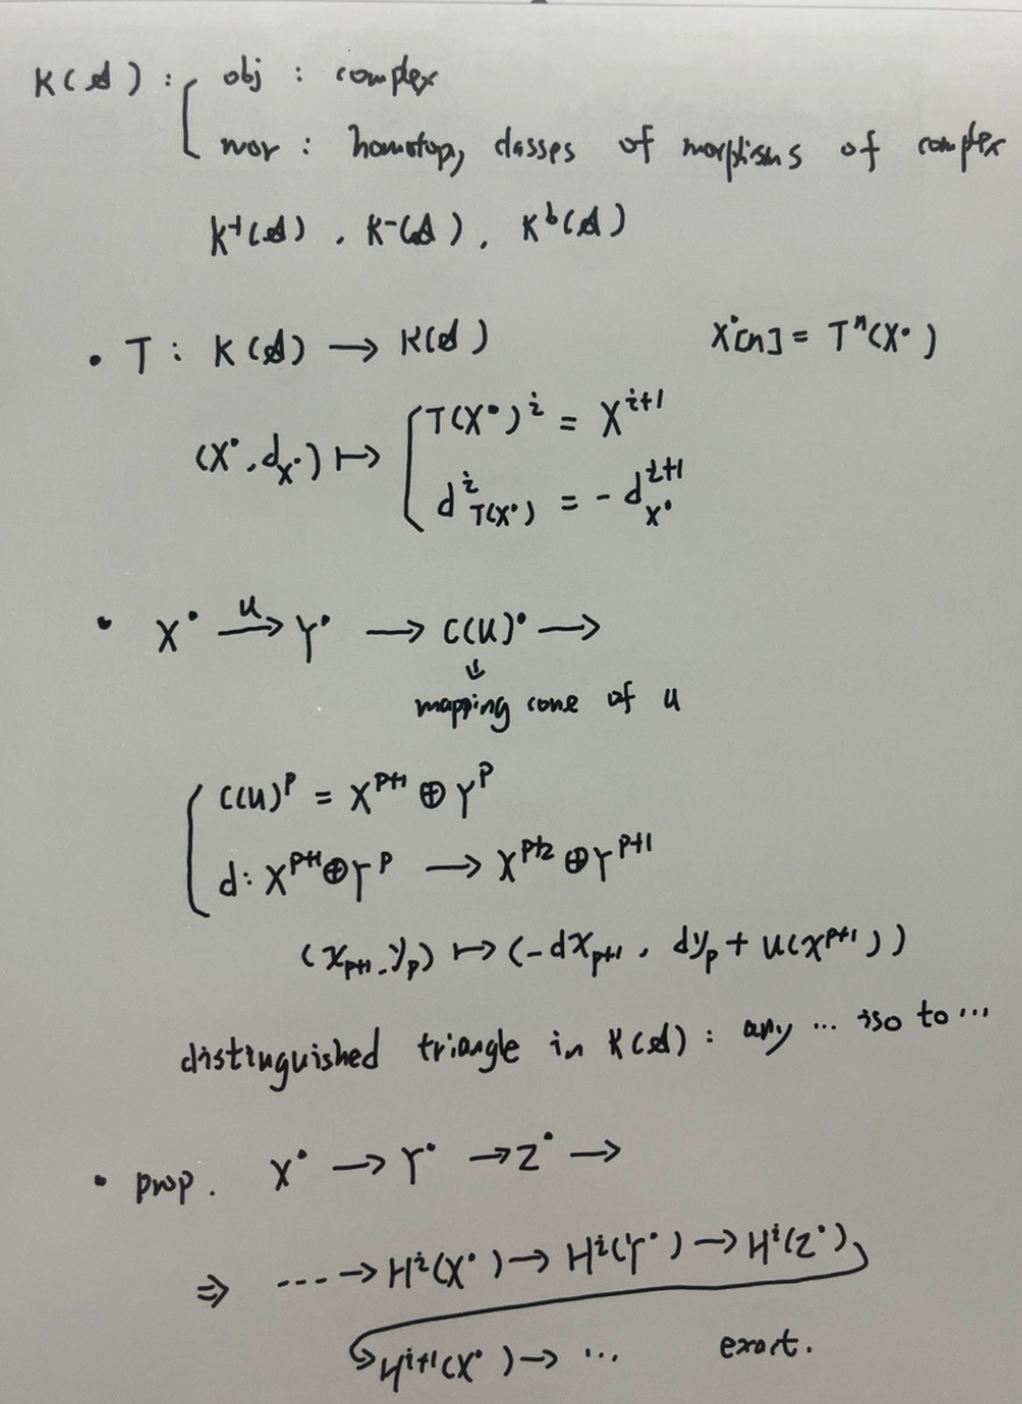 K(𝒜) : { obj : complex
mor : homotopy classes of morphisms of complex
K⁺(𝒜) , K⁻(𝒜) , Kᵇ(𝒜)
• T : K(𝒜) → K(𝒜)    X•[n] = Tⁿ(X•)
(X•, d_X•) ↦ { T(X•)ⁱ = Xⁱ⁺¹
dⁱ_T(X•) = - dⁱ⁺¹_X•
• X• —u→ Y• → C(u)• →
⇓
mapping cone of u
{ C(u)ᵖ = Xᵖ⁺¹ ⊕ Yᵖ
d : Xᵖ⁺¹ ⊕ Yᵖ → Xᵖ⁺² ⊕ Yᵖ⁺¹
(x_p+1, y_p) ↦ (-dx_p+1, dy_p + u(xᵖ⁺¹))
distinguished triangle in K(𝒜) : any ... iso to ...
• prop. X• → Y• → Z• →
⇒ ---- → Hⁱ(X•) → Hⁱ(Y•) → Hⁱ(Z•)
↪ Hⁱ⁺¹(X•) → ... exact.